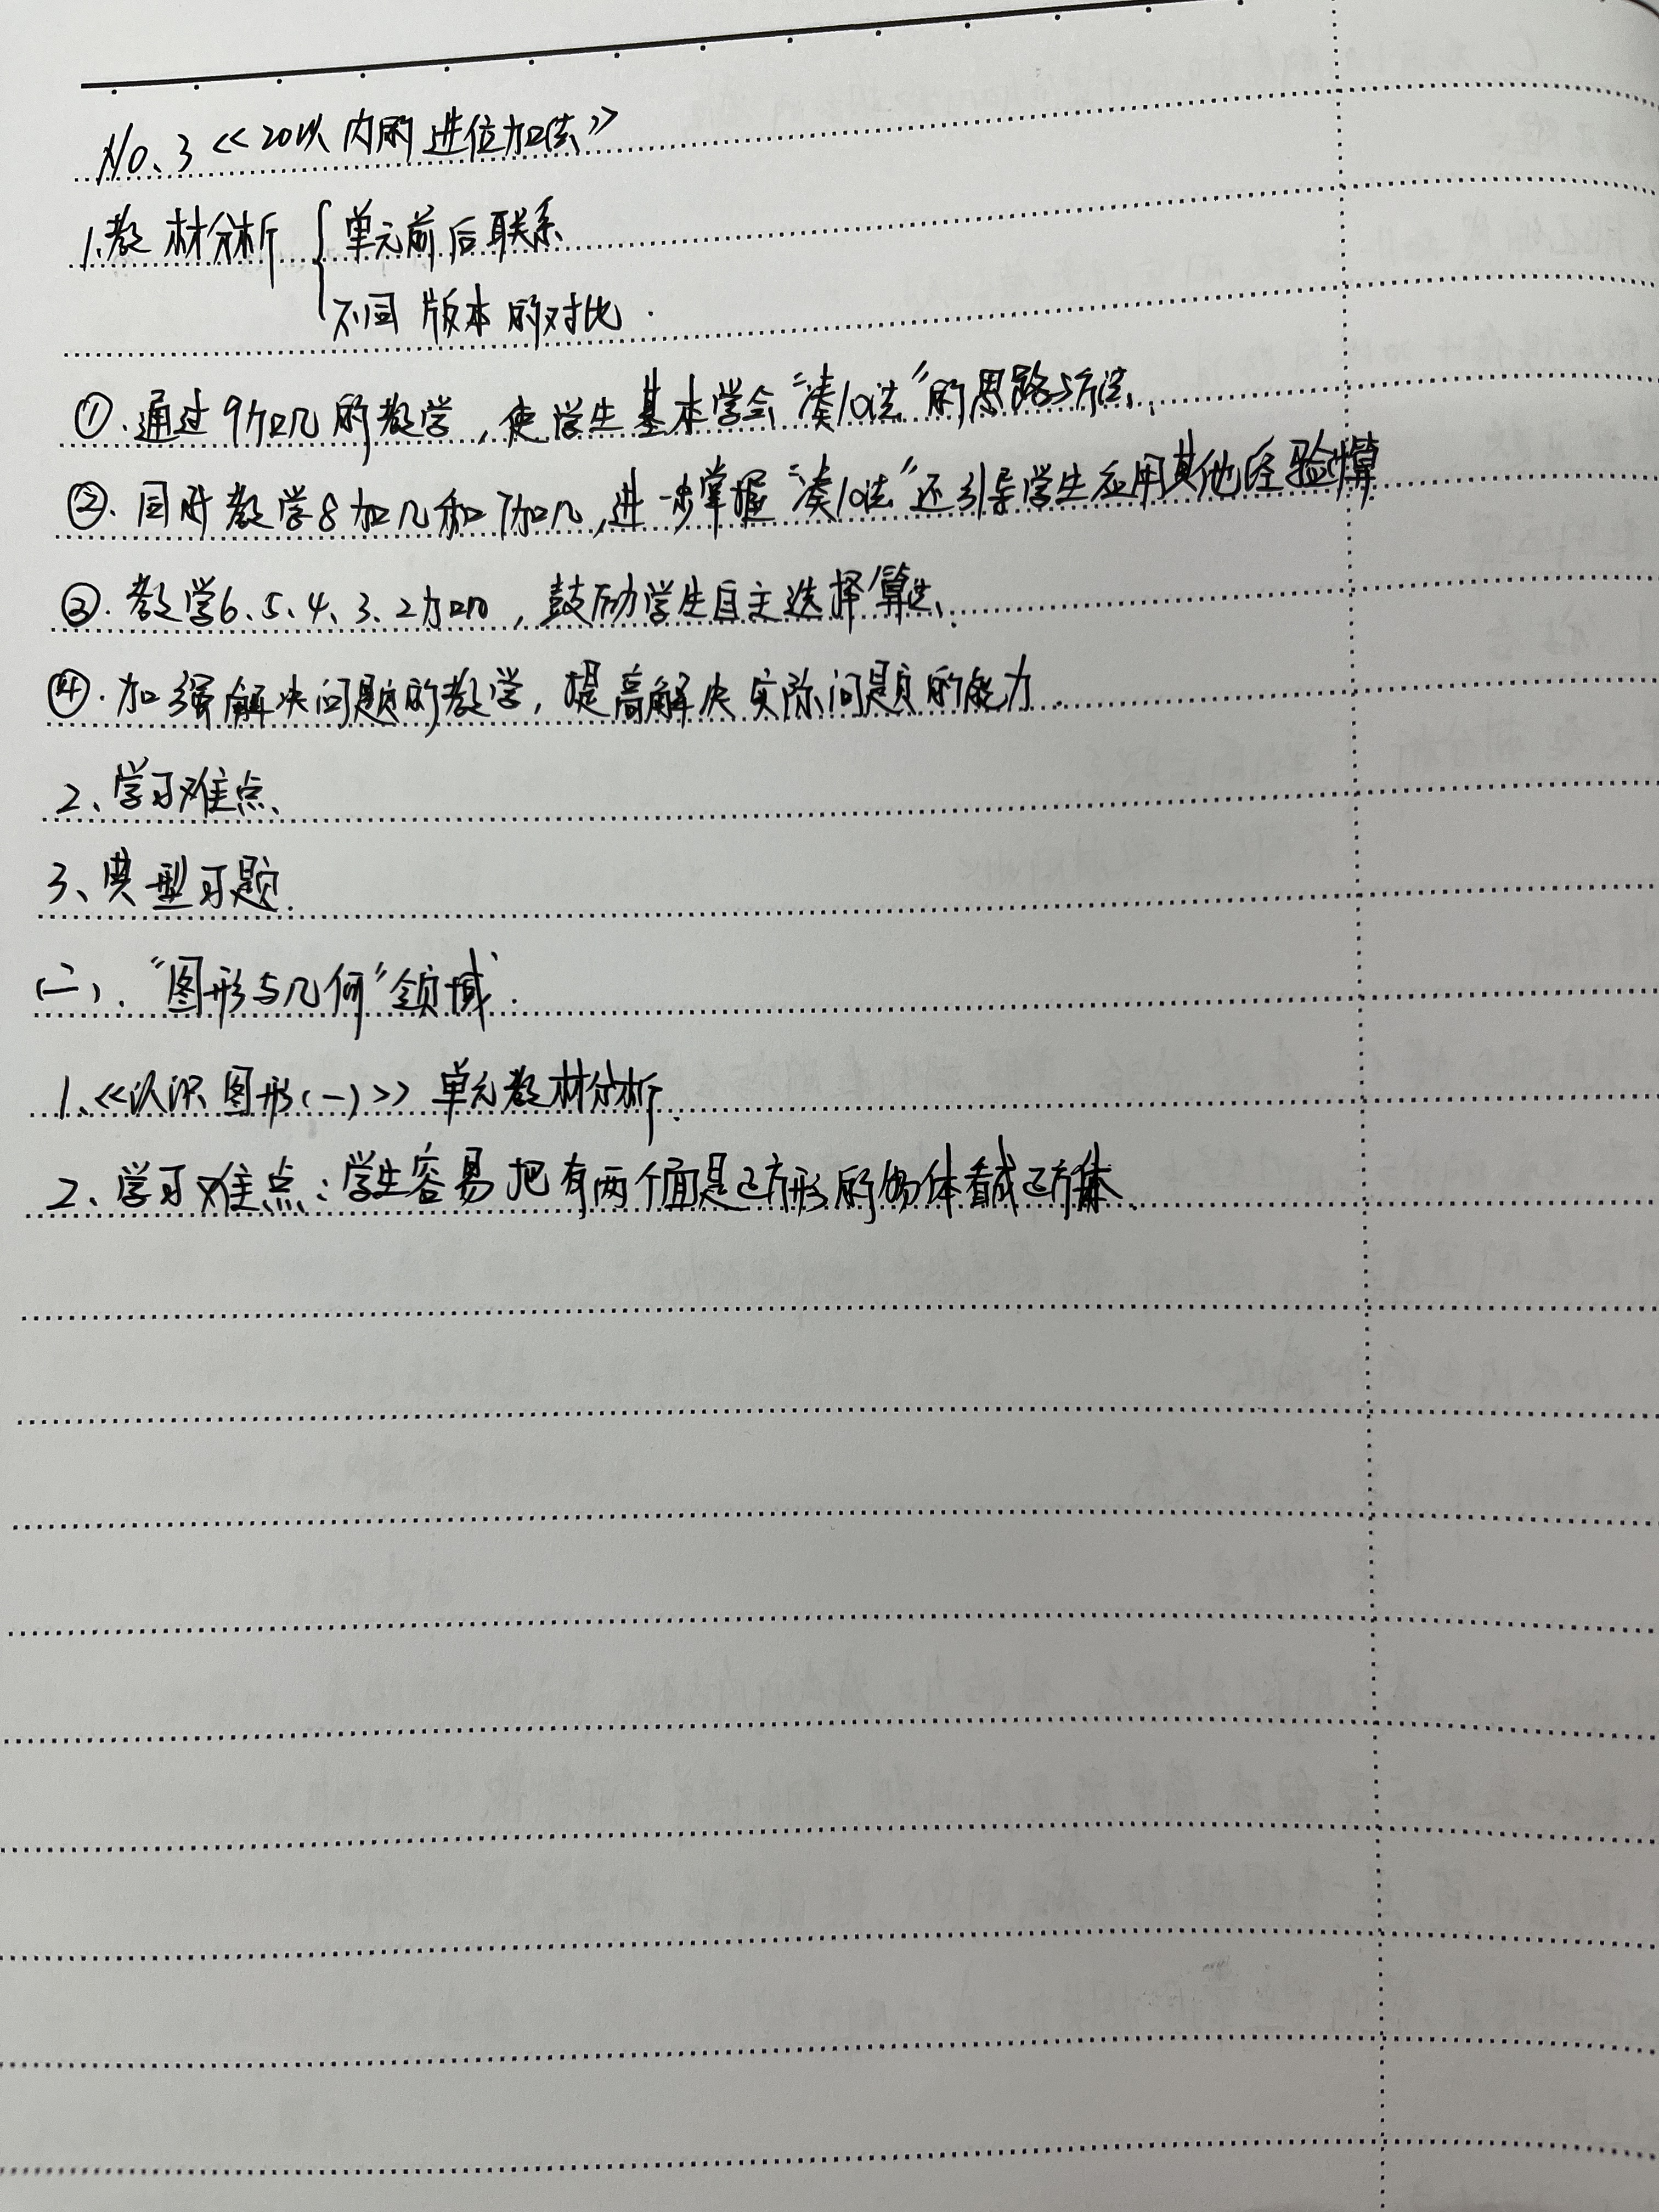 No、3《20以内的进位加法》
1.教材分析 { 单元前后联系
不同版本的对比.
①.通过9加几的教学,使学生基本学会“凑10法”的思路与方法.
②.同时教学8加几和7加几,进一步掌握“凑10法”还引导学生应用其他经验算
③.教学6、5、4、3、2加几,鼓励学生自主选择算法.
④.加强解决问题的教学,提高解决实际问题的能力.
2、学习难点、
3、典型习题.
(二)."图形与几何"领域.
1.《认识图形(一)》单元教材分析.
2、学习难点:学生容易把有两个面是正方形的物体看成正方体.